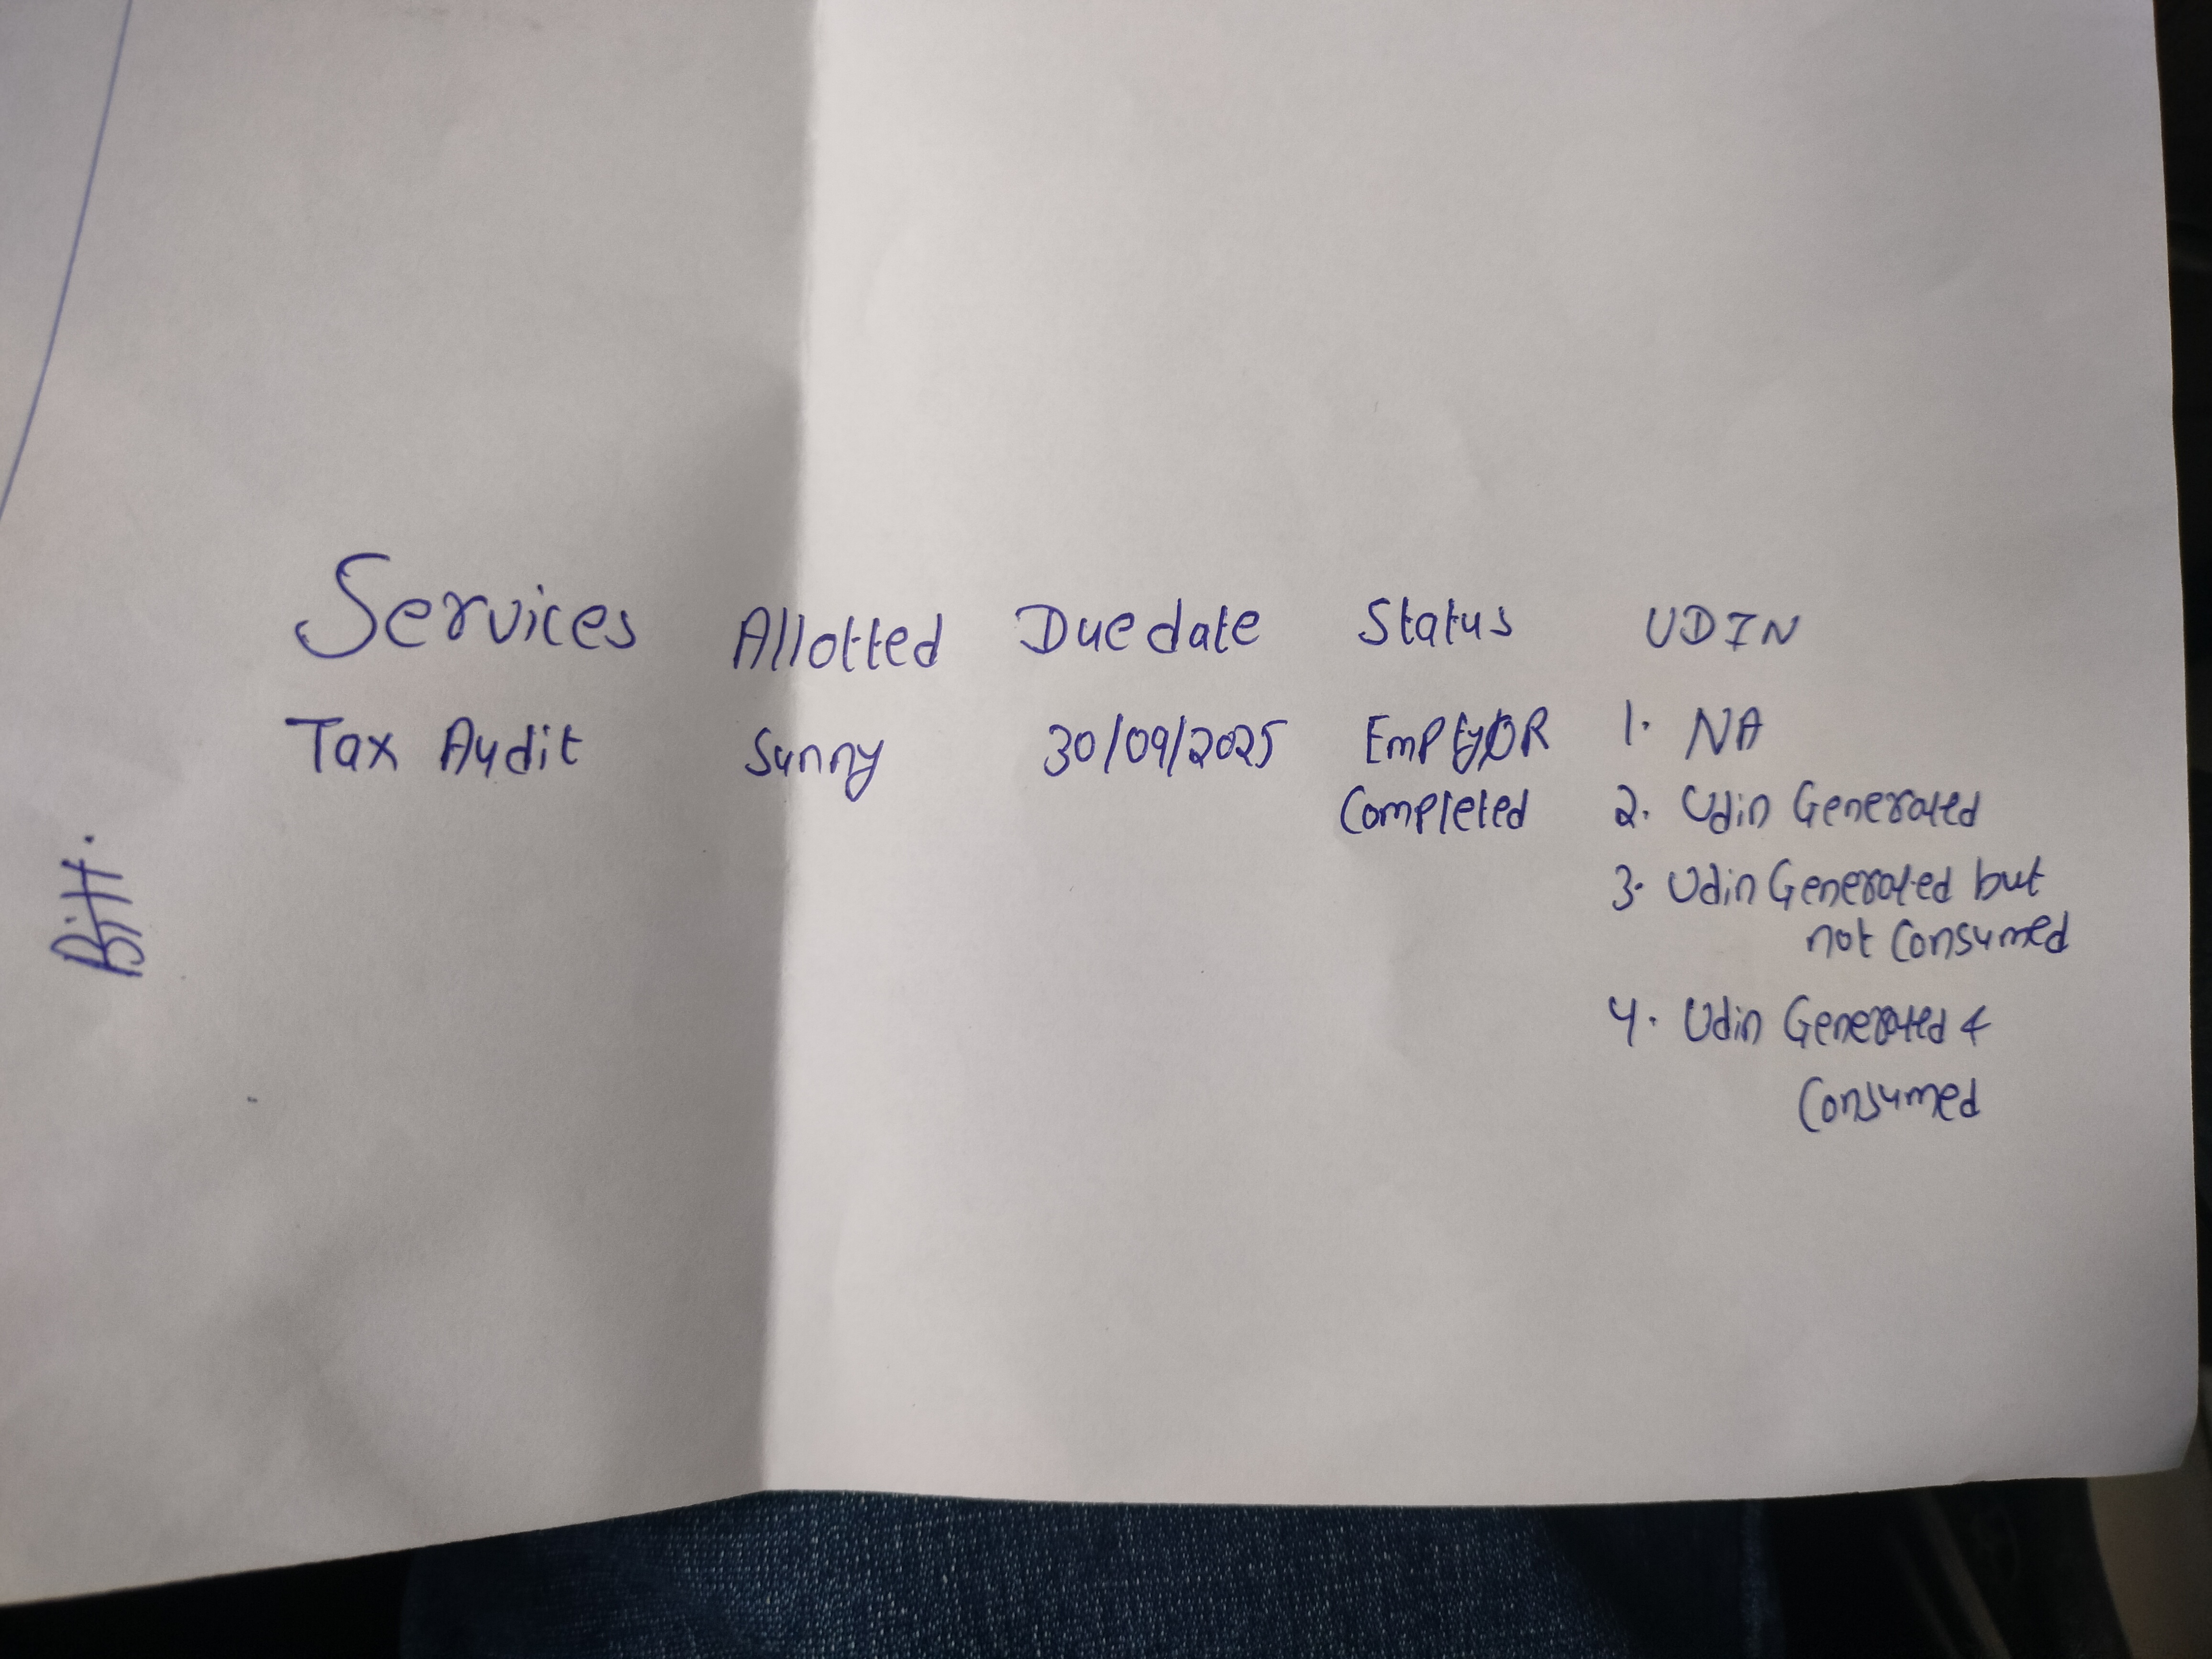 Services Allotted Due date Status UDIN
Tax Audit Sunny 30/09/2025 Empty OR 1. NA
Completed 2. Udin Generated
3. Udin Generated but
not Consumed
4. Udin Generated &
Consumed